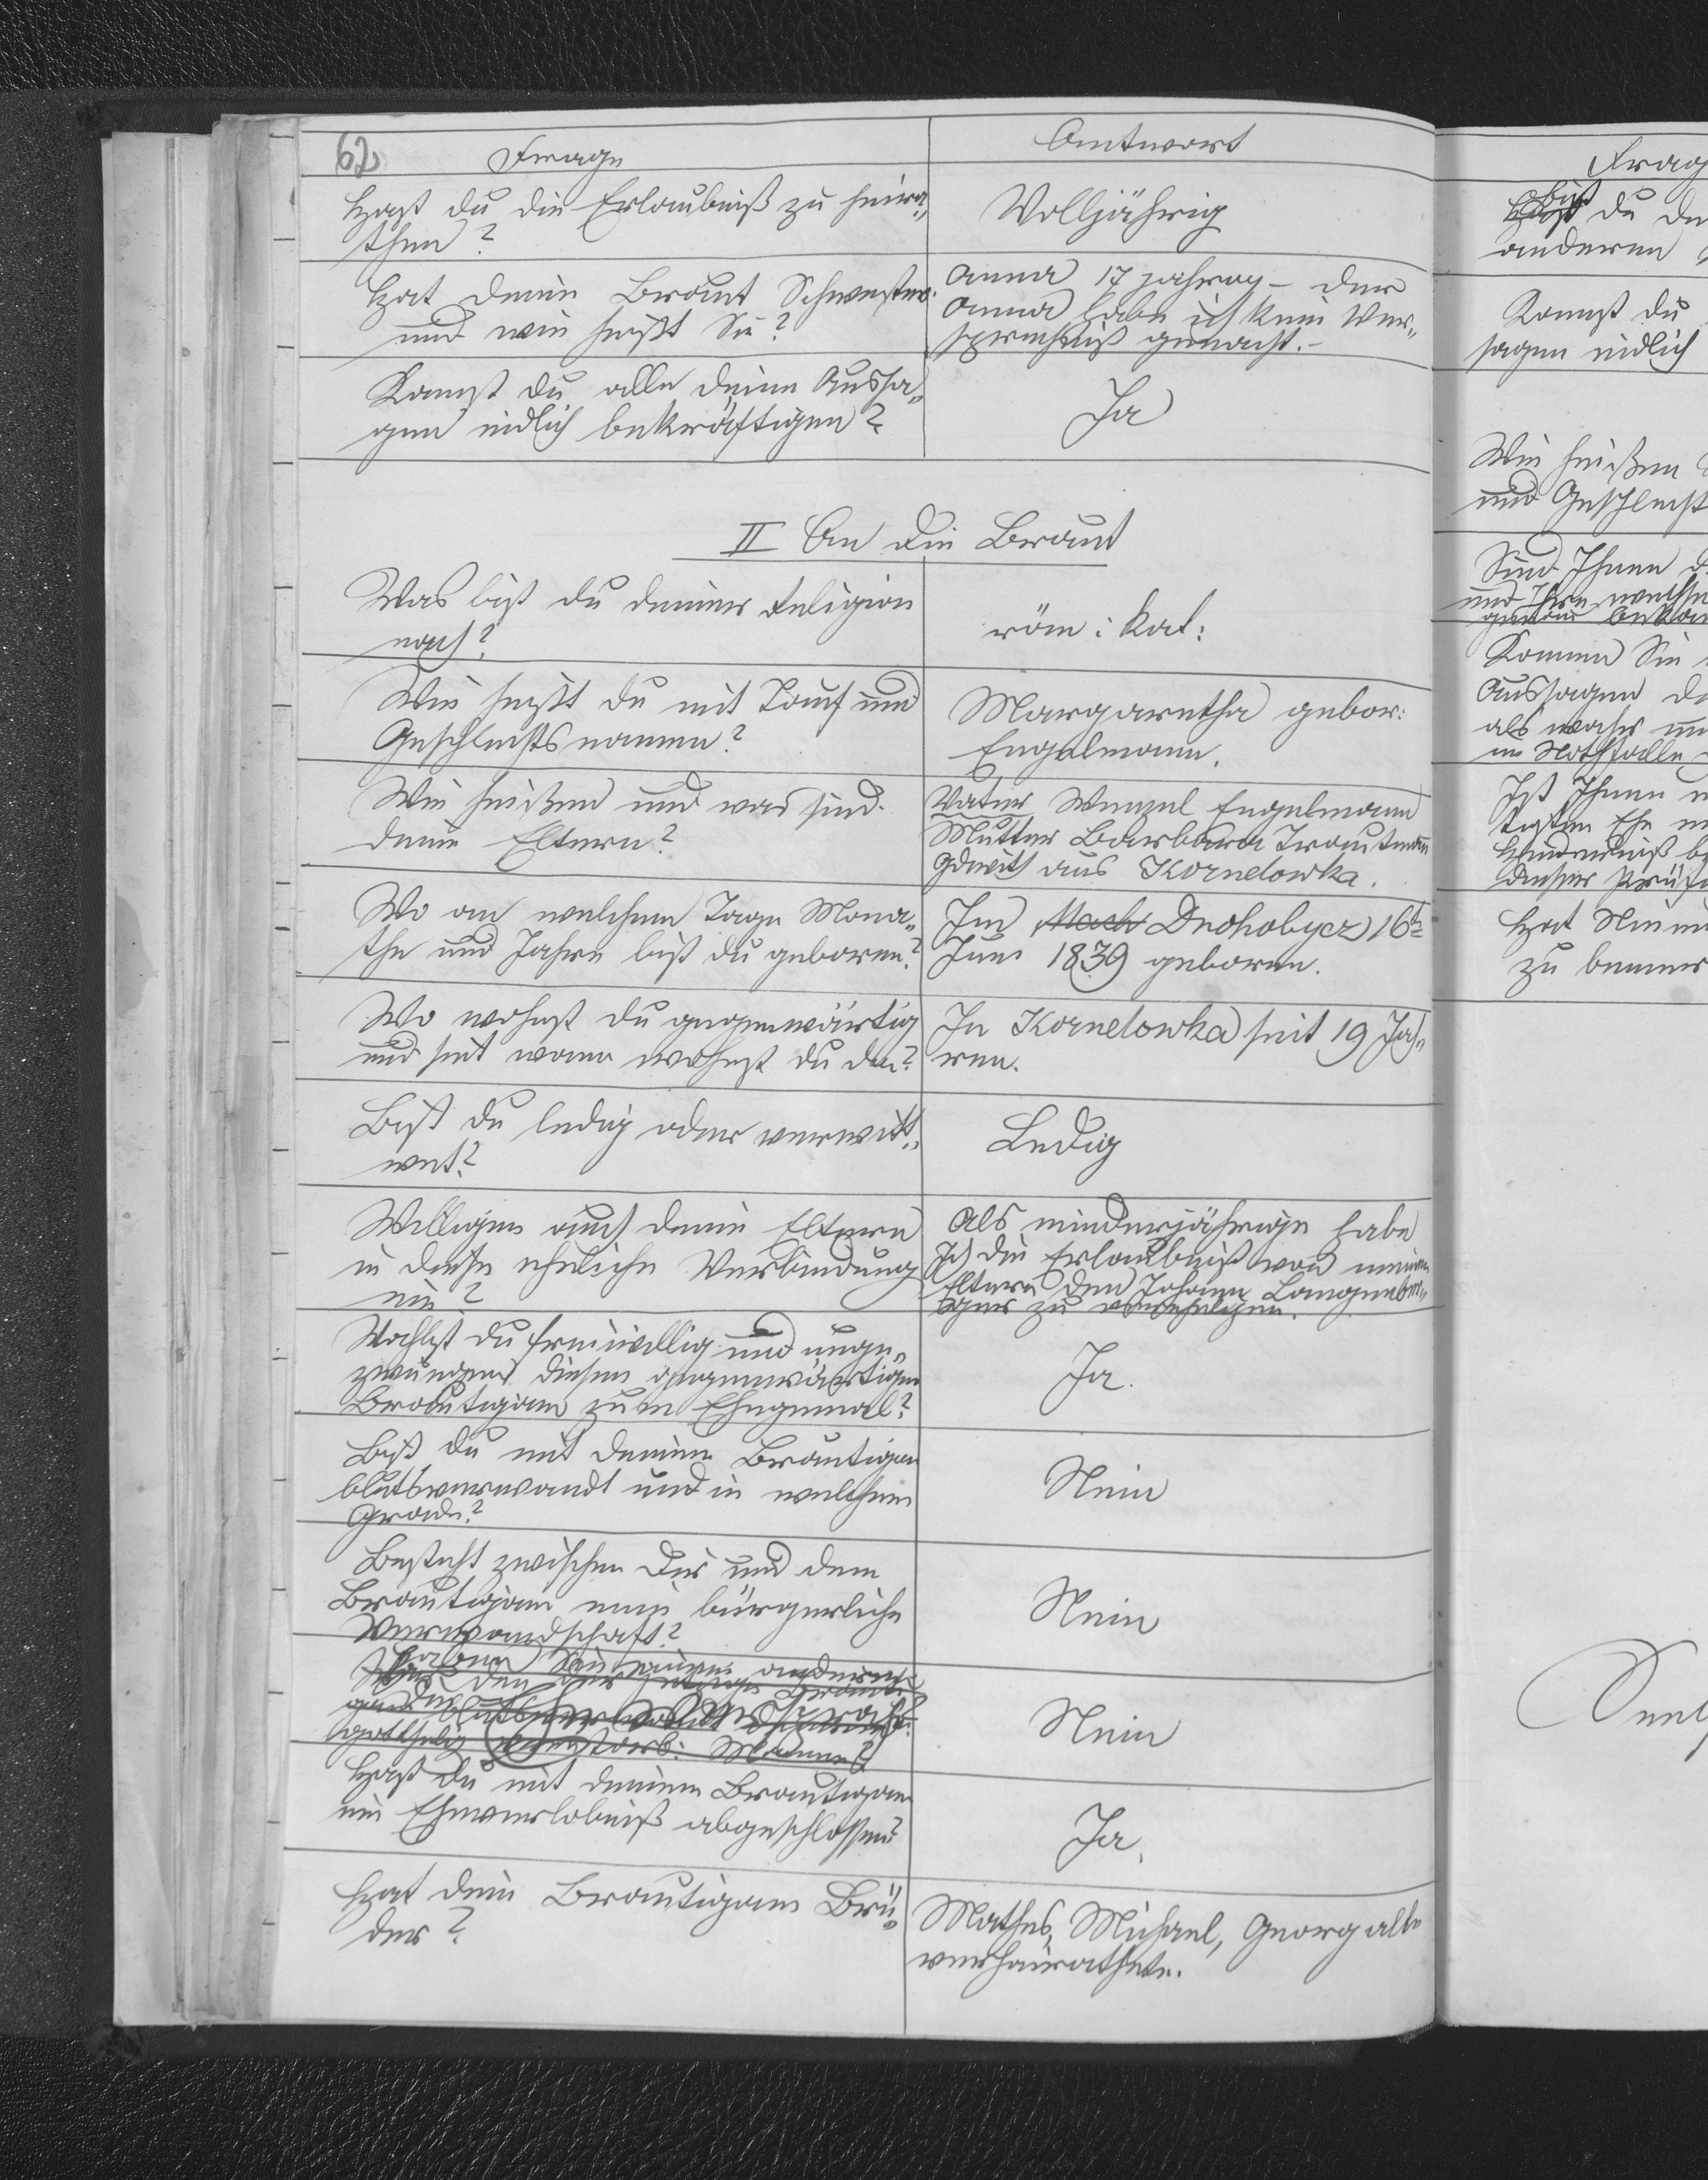 62
Frage
Antwort
Hast du die Erlaubniß zu heira-
then?
Volljährig
Hat deine Braut Schwester
und wie heißt Sie?
Anna 17 jahrig - der
Anna habe ich kein Ver-
sprechniß gemacht.-
Kannst du alle deine Aussa-
gen eidlich bekräftigen?
Ja
II An die Braut
Was bist du deiner Religion
nach?
röm: kat:
Wie heißt du mit Tauf und
Geschlechtsnamen?
Margaretha gebor:
Engelmann.
Wie heißen und was sind
deine Eltern?
Vater Wenzel Engelmann
Mutter Barbara Trautmann
aus Kornelowka.
Wo an welchem Tage Mona-
the und Jahre bist du geboren?
In Drohobycz 16t
Juni 1839 geboren.
Wo wohnst du gegenwärtig
und seit wann wohnst du da?
In Kornelowka seit 19 Jah-
ren.
Bist du ledig oder verwitt-
wet?
Ledig
Willigen auch deine Eltern
in diese eheliche Verbindung
ein?
Als minderjährige habe
Ich die Erlaubniß von meinen
Eltern den Johann Langenber-
ger zu verehelichen.
Wohlst du freiwillig und unge-
zwungen diesen gegenwärtigen
Brautigam zum Ehegemal?
Ja.
Bist du mit deinem Brautigam
blutsverwandt und in welchem
Grade?
Nein
Besteht zwischen dir und dem
Brautigam eine bürgerliche
Verwandschaft?
Nein
Haben Sie einen anderen
gottselig verstorb: Mannes?
Nein
Hast du mit deinem Brautigam
ein Eheverlobniß abgeschlossen?
Ja.
Hat dein Brautigam Brü-
der?
Mathes, Michael, Georg alle
verheirathete.
Frag
bist
du de
anderen
Kannst du
sagen eidlich
Wie heißen
und Geschlecht
Sind Ihnen d
und Ihre
Können Sie
Aussagen de
als wahr un
im Nothfalle
Ist Ihnen
Ehe
Hinderniß be
dieser Prüfu
Hat Niem
zu bemer